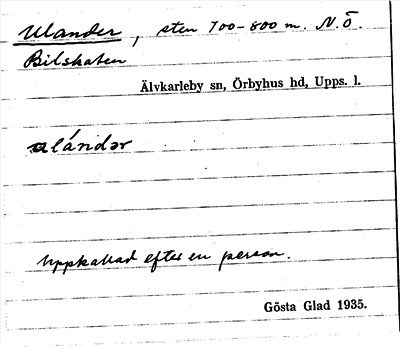 Ulander, sten 700-800 m. N.Ö.
Bilskaten
Älvkarleby sn, Örbyhus hd, Upps. l.
ulándər
Uppkallad efter en person.
Gösta Glad 1935.